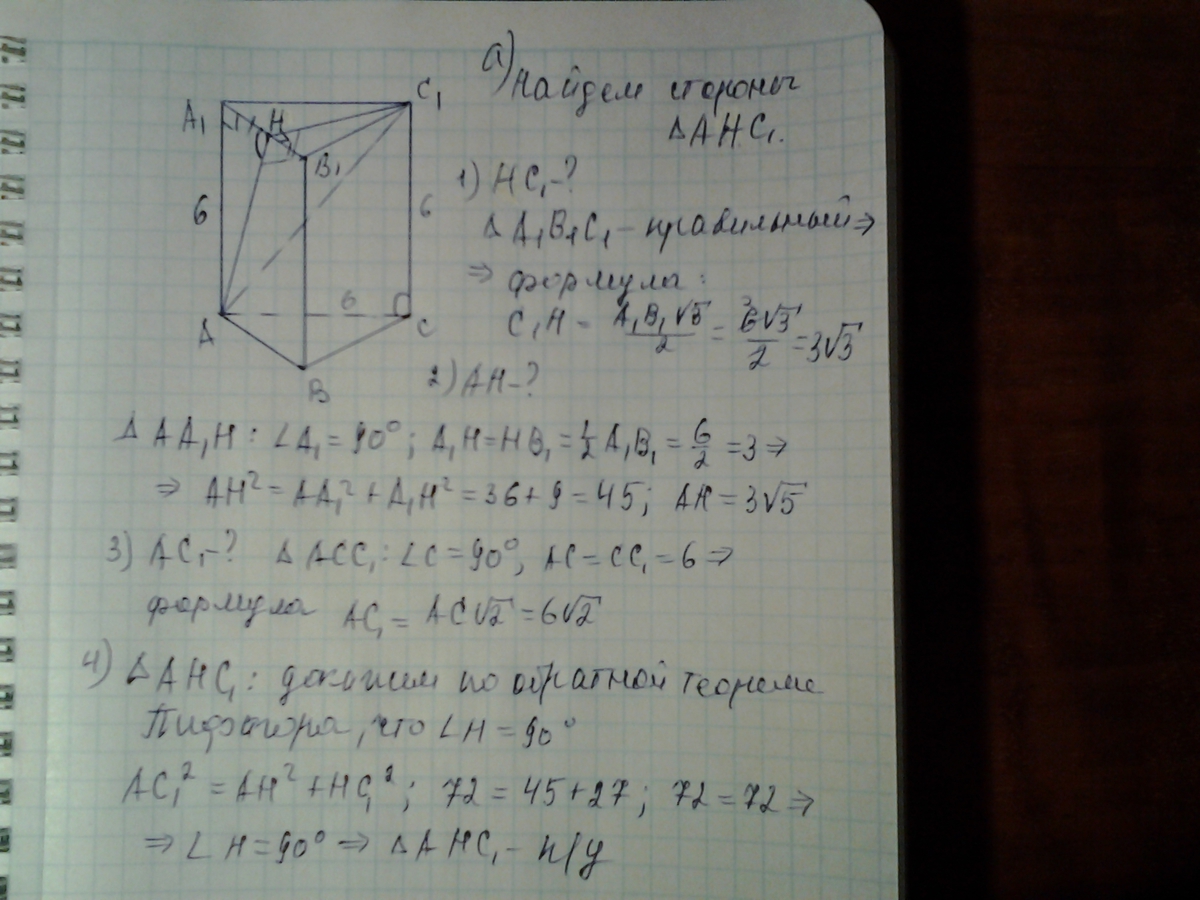 а) Найдем стороны
△AHC₁.
A₁
H
C₁
B₁
6
6
6
A
C
B
1) HC₁-?
△A₁B₁C₁ – правильный ⇒
⇒ формула:
C₁H = A₁B₁√3/2 = 6√3/2 = 3√3
2) AH-?
△AA₁H: ∠A₁ = 90°; A₁H = HB₁ = 1/2 A₁B₁ = 6/2 = 3 ⇒
⇒ AH² = AA₁² + A₁H² = 36 + 9 = 45; AH = 3√5
3) AC₁-? △ACC₁: ∠C = 90°, AC = CC₁ = 6 ⇒
формула AC₁ = AC√2 = 6√2
4) △AHC₁: докажем по обратной теореме
Пифагора, что ∠H = 90°
AC₁² = AH² + HC₁²; 72 = 45 + 27; 72 = 72 ⇒
⇒ ∠H = 90° ⇒ △AHC₁ – п/у